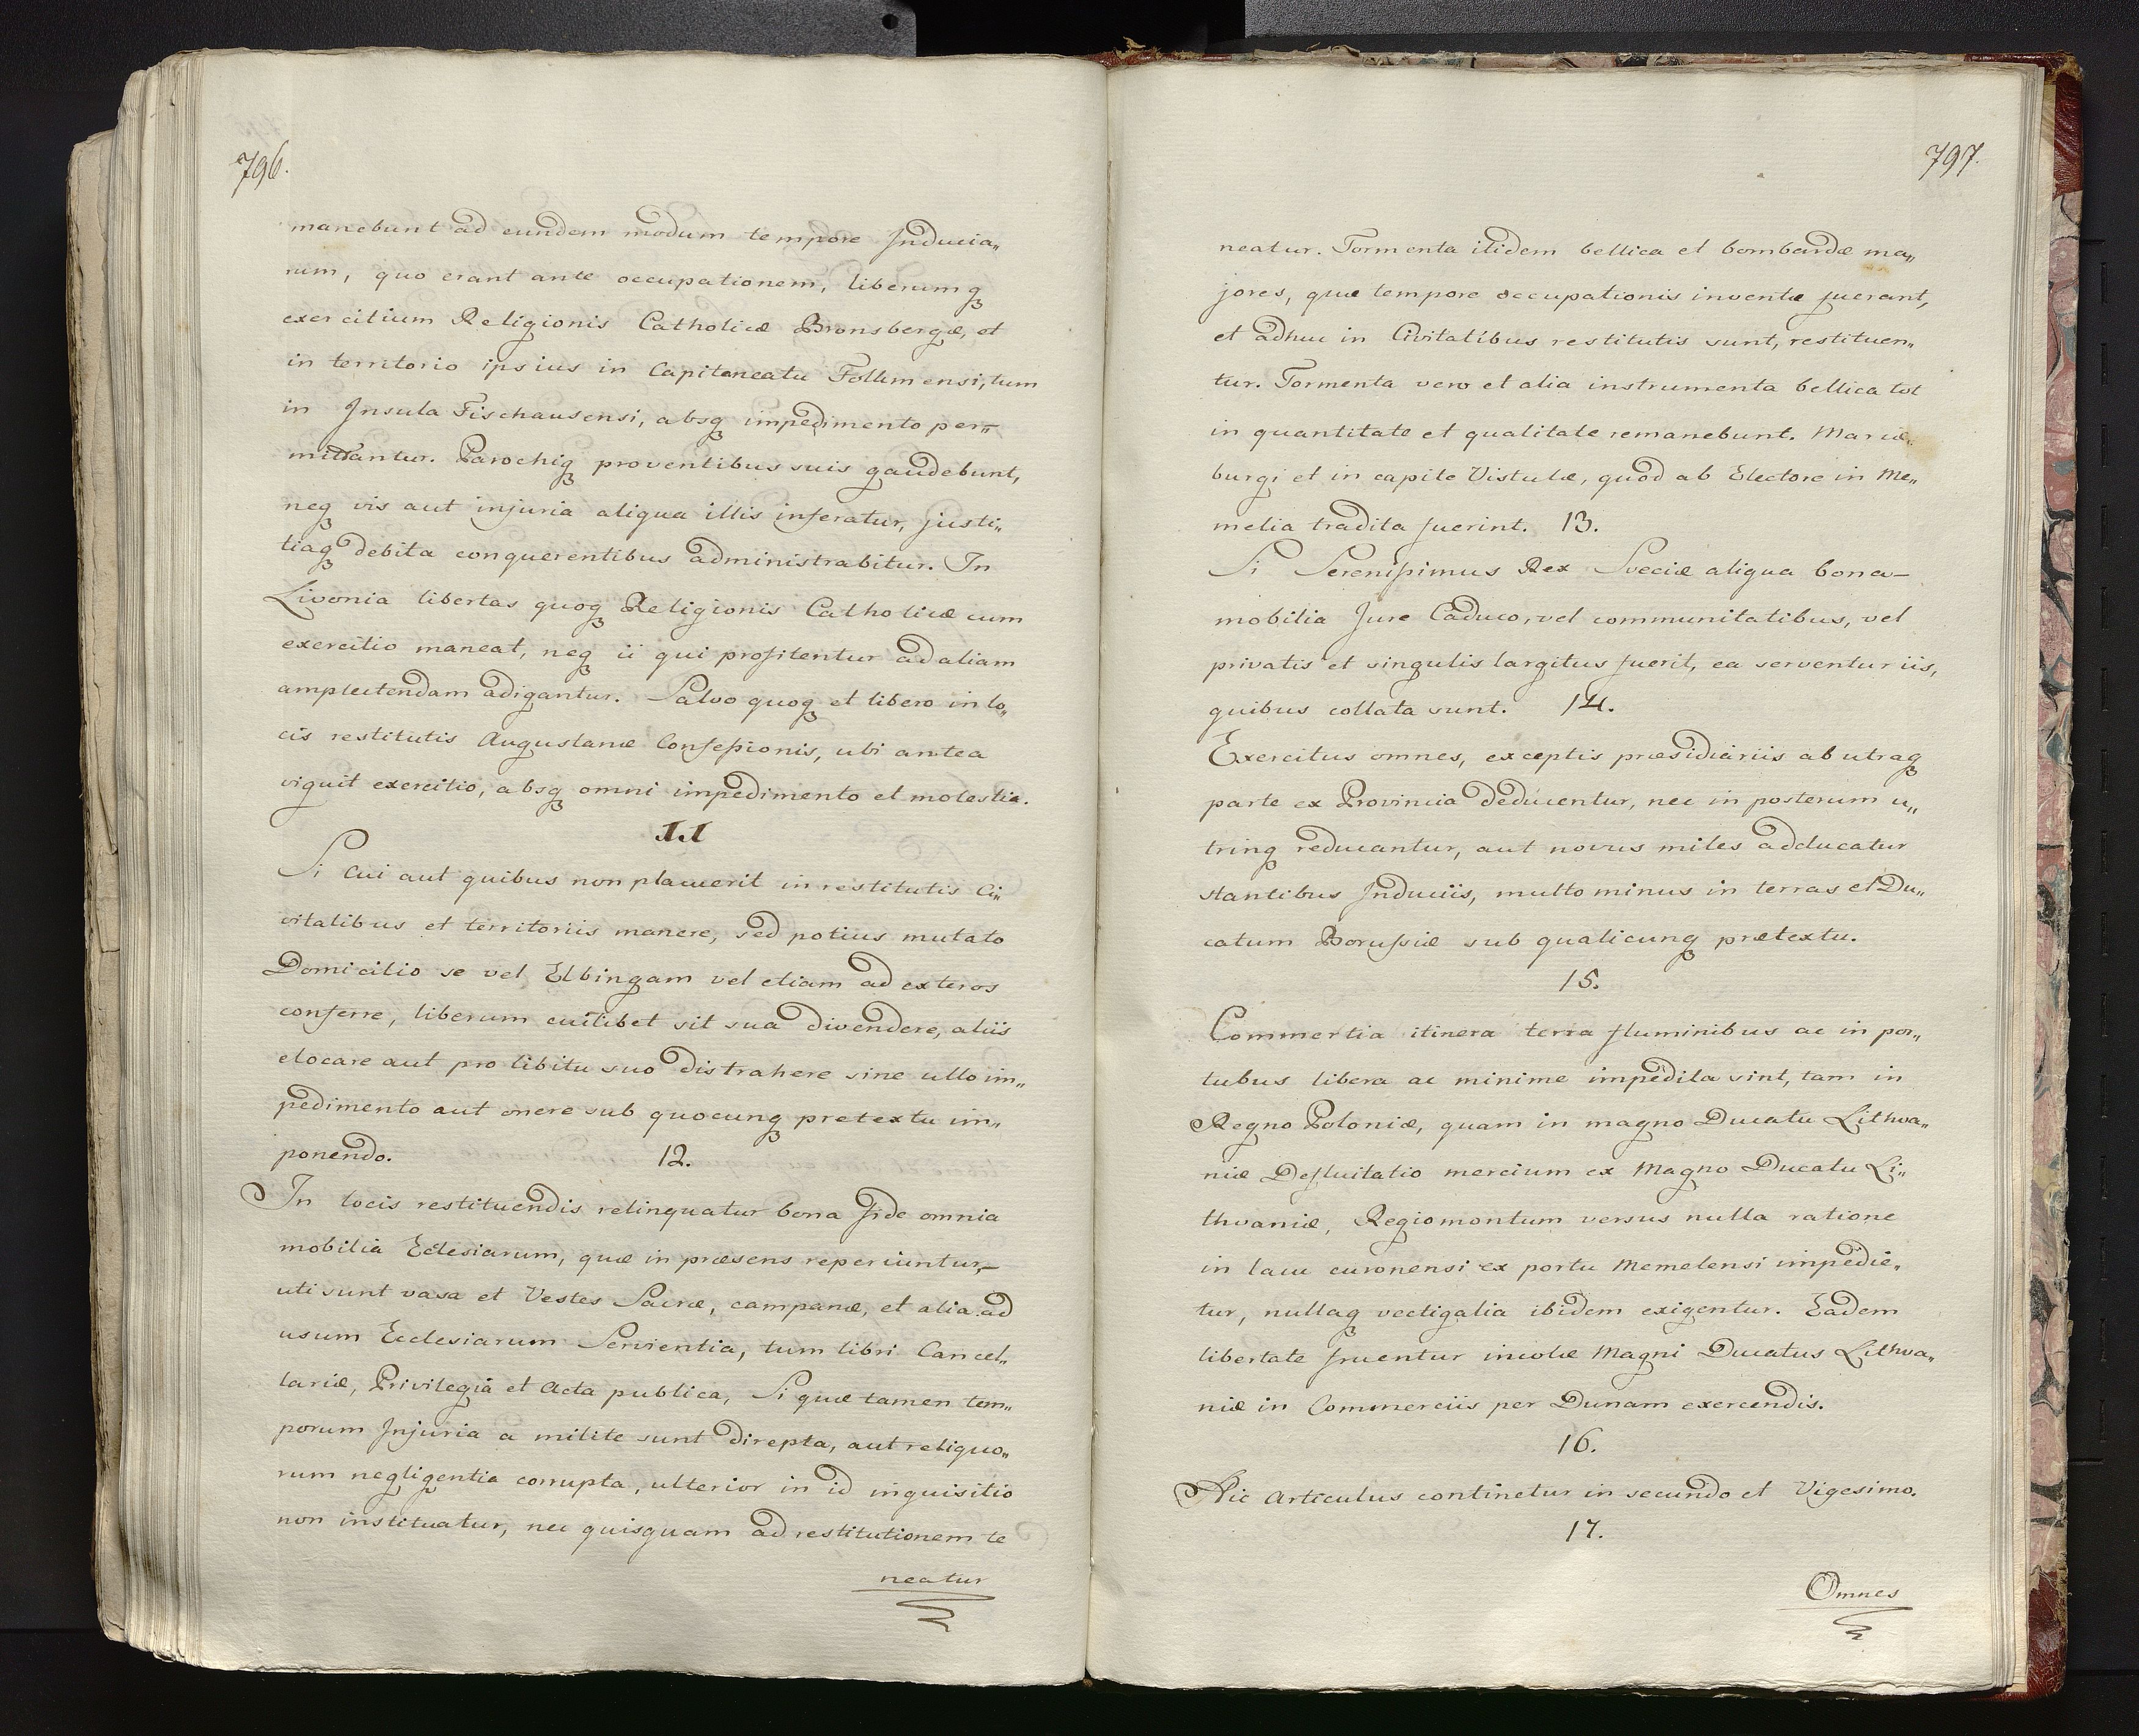 796.
manebunt ad eundem modum tempore Inducia„
rum, quo erant ante occupationem, liberumq
exercitium Religionis Catholicæ Bronsbergæ, et
in territorio ipsius in Capitaneatu Follimensi, tum
in Insula Fischausensi, absq impedimento per„
mittantur. Parochiq proventibus suis gaudebunt,
neq vis aut injuria aliqua illis inferatur, justi„
tiaq debita conquerentibus administrabitur. In
Livonia libertas quoq Religionis Catholicæ cum
exercitio maneat, neq ii qui profitentur ad aliam
amplectendam adigantur. Salvo quoq et libero in lo„
cis restitutis Augustanæ Confessionis, ubi antea
viguit exercitio, absq omni impedimento et molestia.
11
Si Cui aut quibus non placuerit in restitutis Ci„
vitatibus et territoriis manere, sed potius mutato
Domicilio se vel Elbingam vel etiam ad exteros
conferre, liberum cuilibet sit sua divendere, aliis
elocare aut pro libitu suo distrahere sine ullo im„
pedimento aut onere sub quocunq pretextu im„
ponendo. 12.
In locis restituendis relinquatur bona fide omnia
mobilia Eclesiarum, quæ in præsens reperiuntur,
uti sunt vasa et Vestes Sacræ, campanæ, et alia ad
usum Ecclesiarum Servientia, tum libri Cancel„
lariæ, Privilegia et Acta publica, Si quæ tamen tem„
porum Injuria a milite sunt direpta, aut reliquo„
rum negligentia corrupta, ulterior in id inquisitio
non instituatur, nec quisquam ad restitutionem te
neatur
797.
neatur. Tormenta itidem bellica et bombardæ ma„
jores, quæ tempore occupationis inventæ fuerant,
et adhuc in Civitatibus restitutis sunt, restituen„
tur. Tormenta vero et alia instrumenta bellica tot
in quantitate et qualitate remanebunt. Mariæ„
burgi et in capite Vistulæ, quod ab Electore in Me„
melia tradita fuerint. 13.
Si Serenissimus Rex Sveciæ aliqua bona
mobilia Jure Caduco, vel communitatibus, vel
privatis et singulis largitus fuerit, ea serventur iis,
quibus collata sunt. 14.
Exercitus omnes, exceptis præsidiariis ab utraq
parte ex Provincia deducentur, nec in posterum u„
trinq reducantur, aut novus miles adducatur
stantibus Induciis, multo minus in terras et Du„
catum Borussiæ sub qualicunq prætextu.
15.
Commertia itinera terra fluminibus ac in por„
tubus libera ac minime impedita sint, tam in
Regno Poloniæ, quam in magno Ducatu Lithva„
niæ Defluitatio mercium ex Magno Ducatu Li„
thvaniæ, Regiomontum versus nulla ratione
in lacu curonensi ex portu Memelensi impedie„
tur, nullaq vectigalia ibidem exigentur. Eadem
libertate fruentur incolæ Magni Ducatus Lithva„
niæ in Commerciis per Dunam exercendis.
16.
Hic Articulus continetur in secundo et Vigesimo.
17.
Omnes